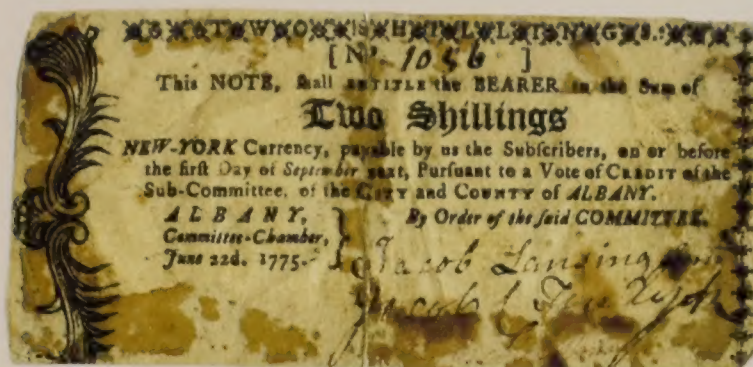 TWO SHILLINGS.
[ No. 1056 ]
This NOTE, ſhall ENTITLE the BEARER to the Sum of
Two Shillings
NEW-YORK Currency, payable by us the Subſcribers, on or before
the firſt Day of September next, Purſuant to a Vote of CREDIT of the
Sub-Committee, of the CITY and COUNTY of ALBANY.
ALBANY,
Committee-Chamber,
June 22d. 1775.
By Order of the ſaid COMMITTEE.
Jacob Lansing
Jacob Ten Eyck